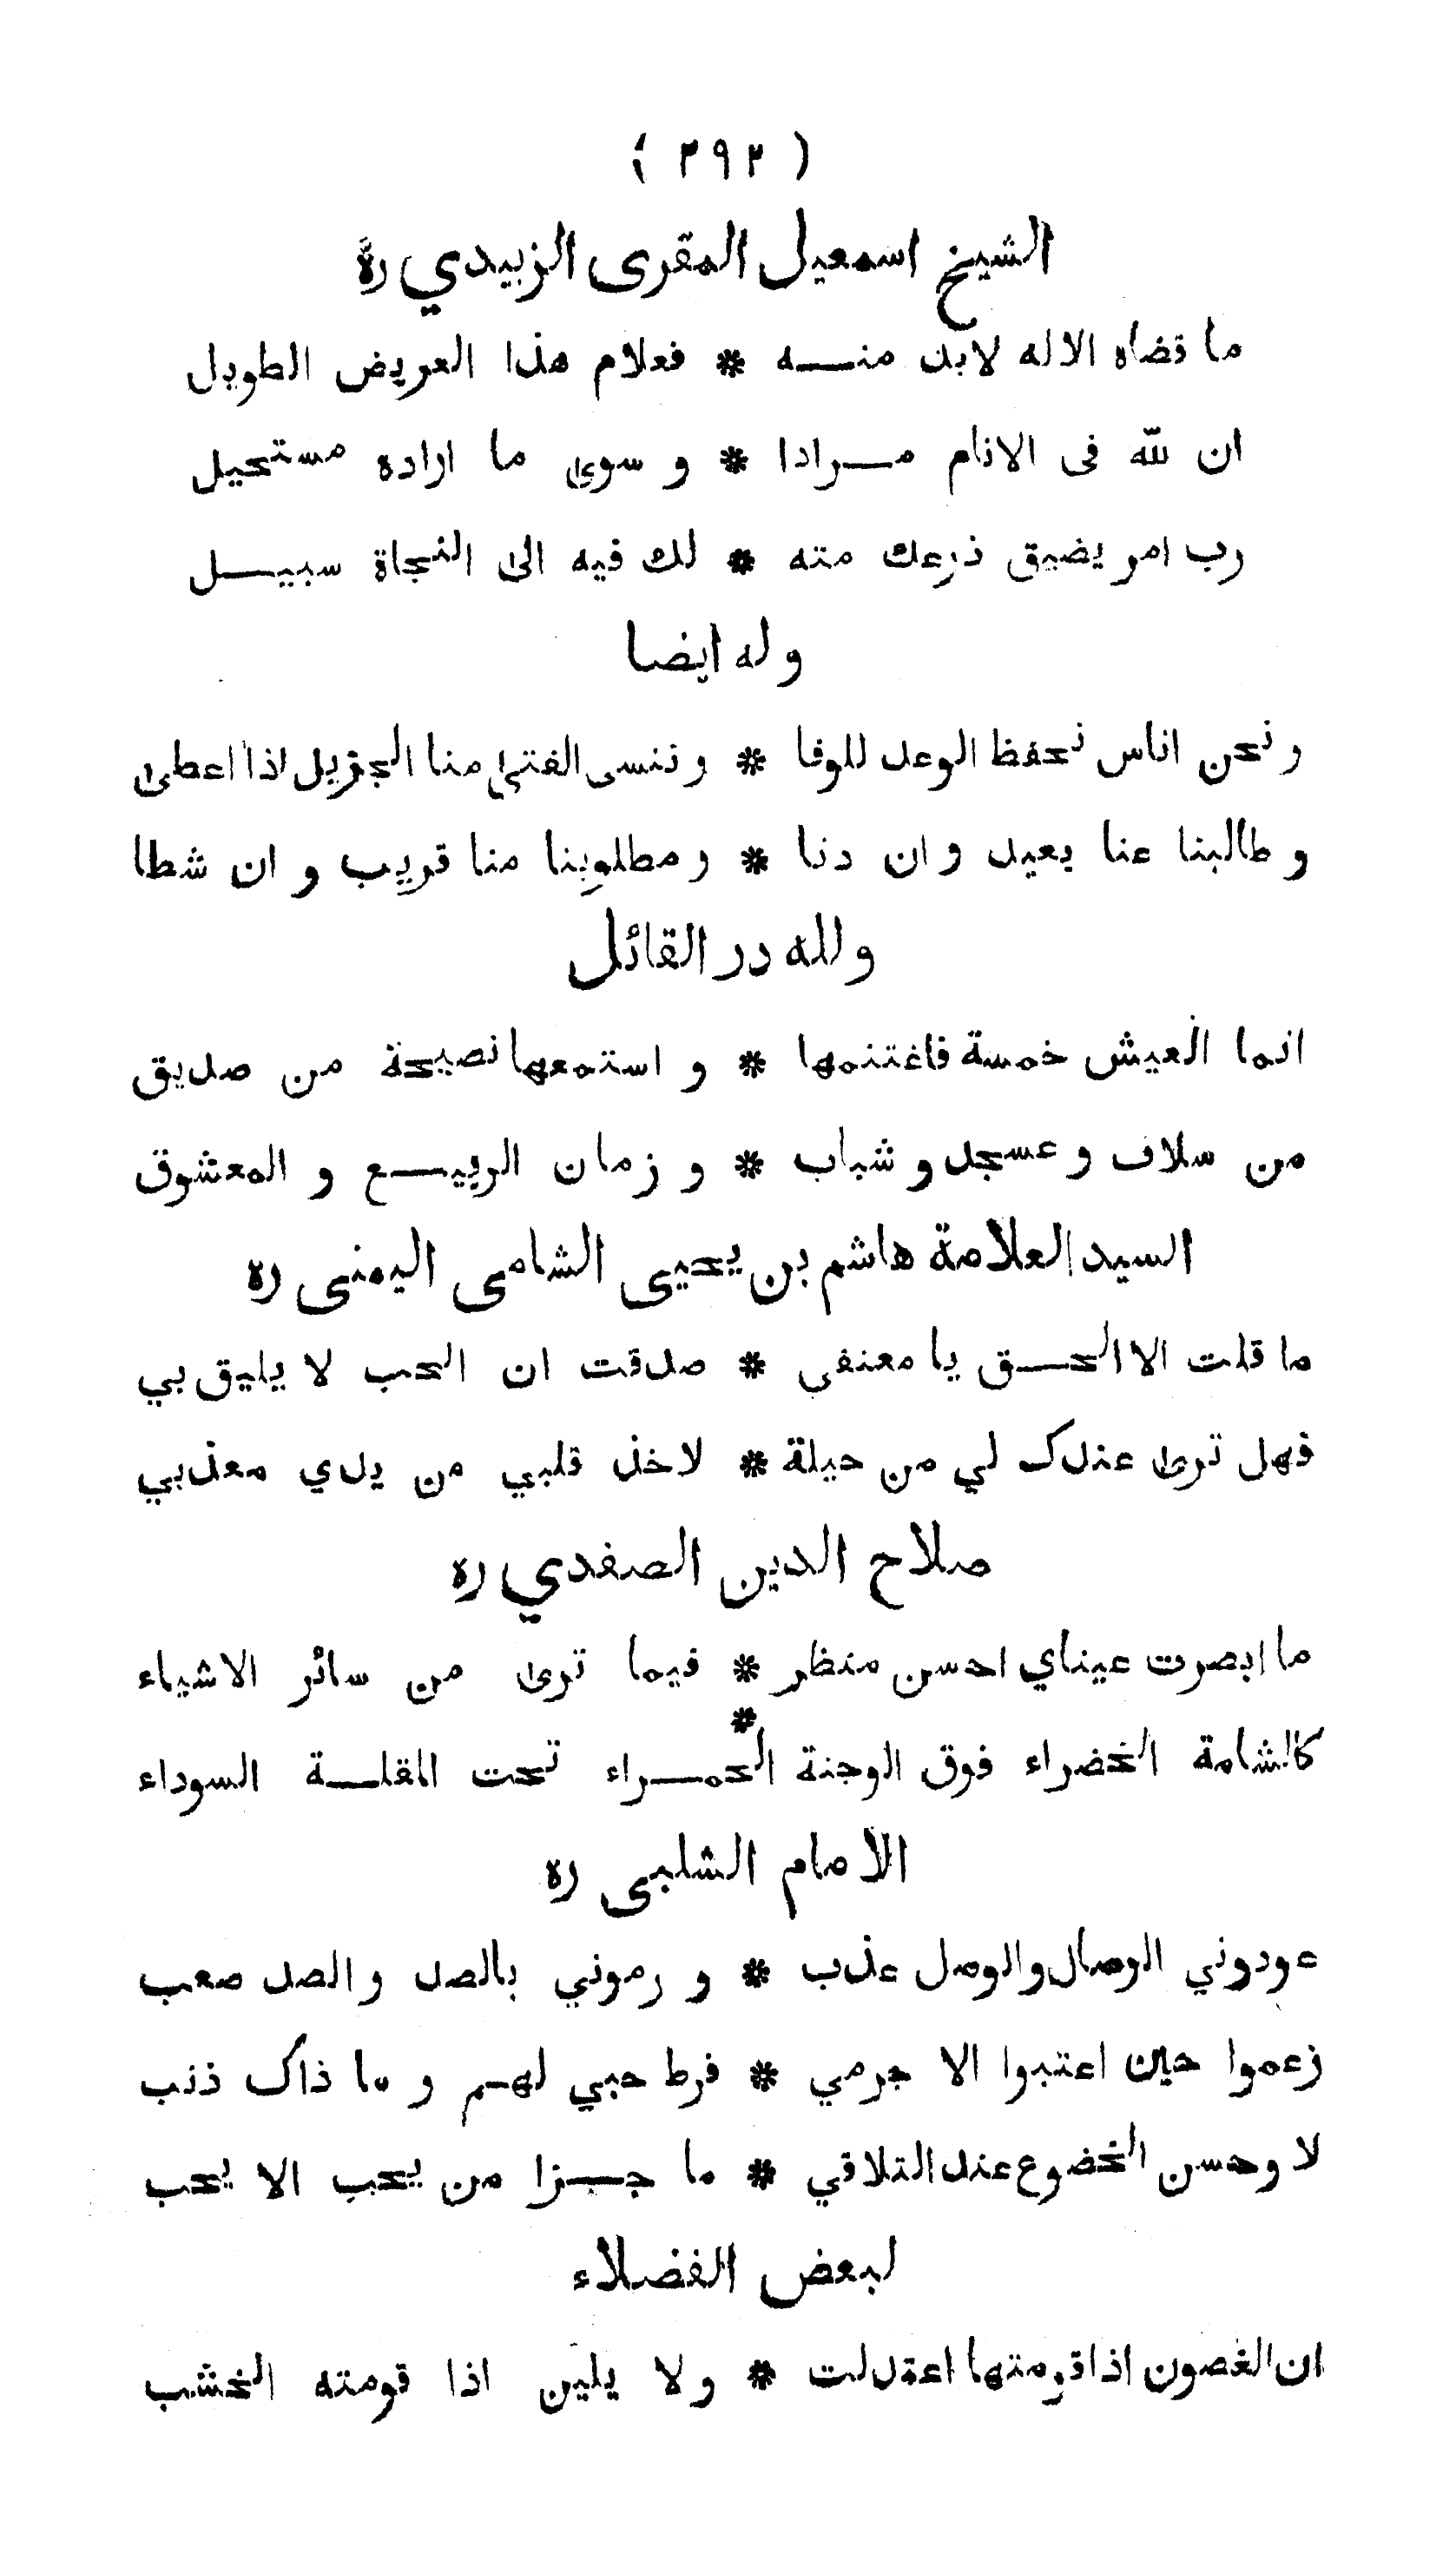 ( ٢٩٢ )
الشيخ اسمعيل المقرى الزبيدي ره
ما قضاه الاله لابد منـــه * فعلام هذا العريض الطويل
ان لله فى الانام مـــرادا * و سوى ما اراده مستحيل
رب امر يضيق ذرعك مته * لك فيه الى النجاة سبيـــل
وله ايضا
و نحن اناس نحفظ الوعد للوفا * و ننسى الفتى منا الجزيل اذا اعطى
و طالبنا عنا بعيد و ان دنا * و مطلوبنا منا قريب و ان شطا
ولله در القائل
انما العيش خمسة فاغتنمها * و استمعها نصيحة من صديق
من سلاف و عسجد و شباب * و زمان الربيـــع و المعشوق
السيد العلامة هاشم بن يحيى الشامى اليمنى ره
ما قلت الا الحـــق يا معنفي * صدقت ان الحب لا يليق بي
فهل ترى عندك لي من حيلة * لاخذ قلبي من يدي معذبي
صلاح الدين الصفدي ره
ما ابصرت عيناي احسن منظر * فيما ترى من سائر الاشياء
*
كالشامة الخضراء فوق الوجنة الحمـــراء تحت المقلـــة السوداء
الامام الشلبى ره
عودوني الوصال والوصل عذب * و رموني بالصد و الصد صعب
زعموا حين اعتبوا الا جرمي * فرط حبي لهـم و ما ذاك ذنب
لا وحسن الخضوع عند التلاقي * ما جـــزا من يحب الا يحب
لبعض الفضلاء
ان الغصون اذا قومتها اعتدلت * ولا يلين اذا قومته الخشب